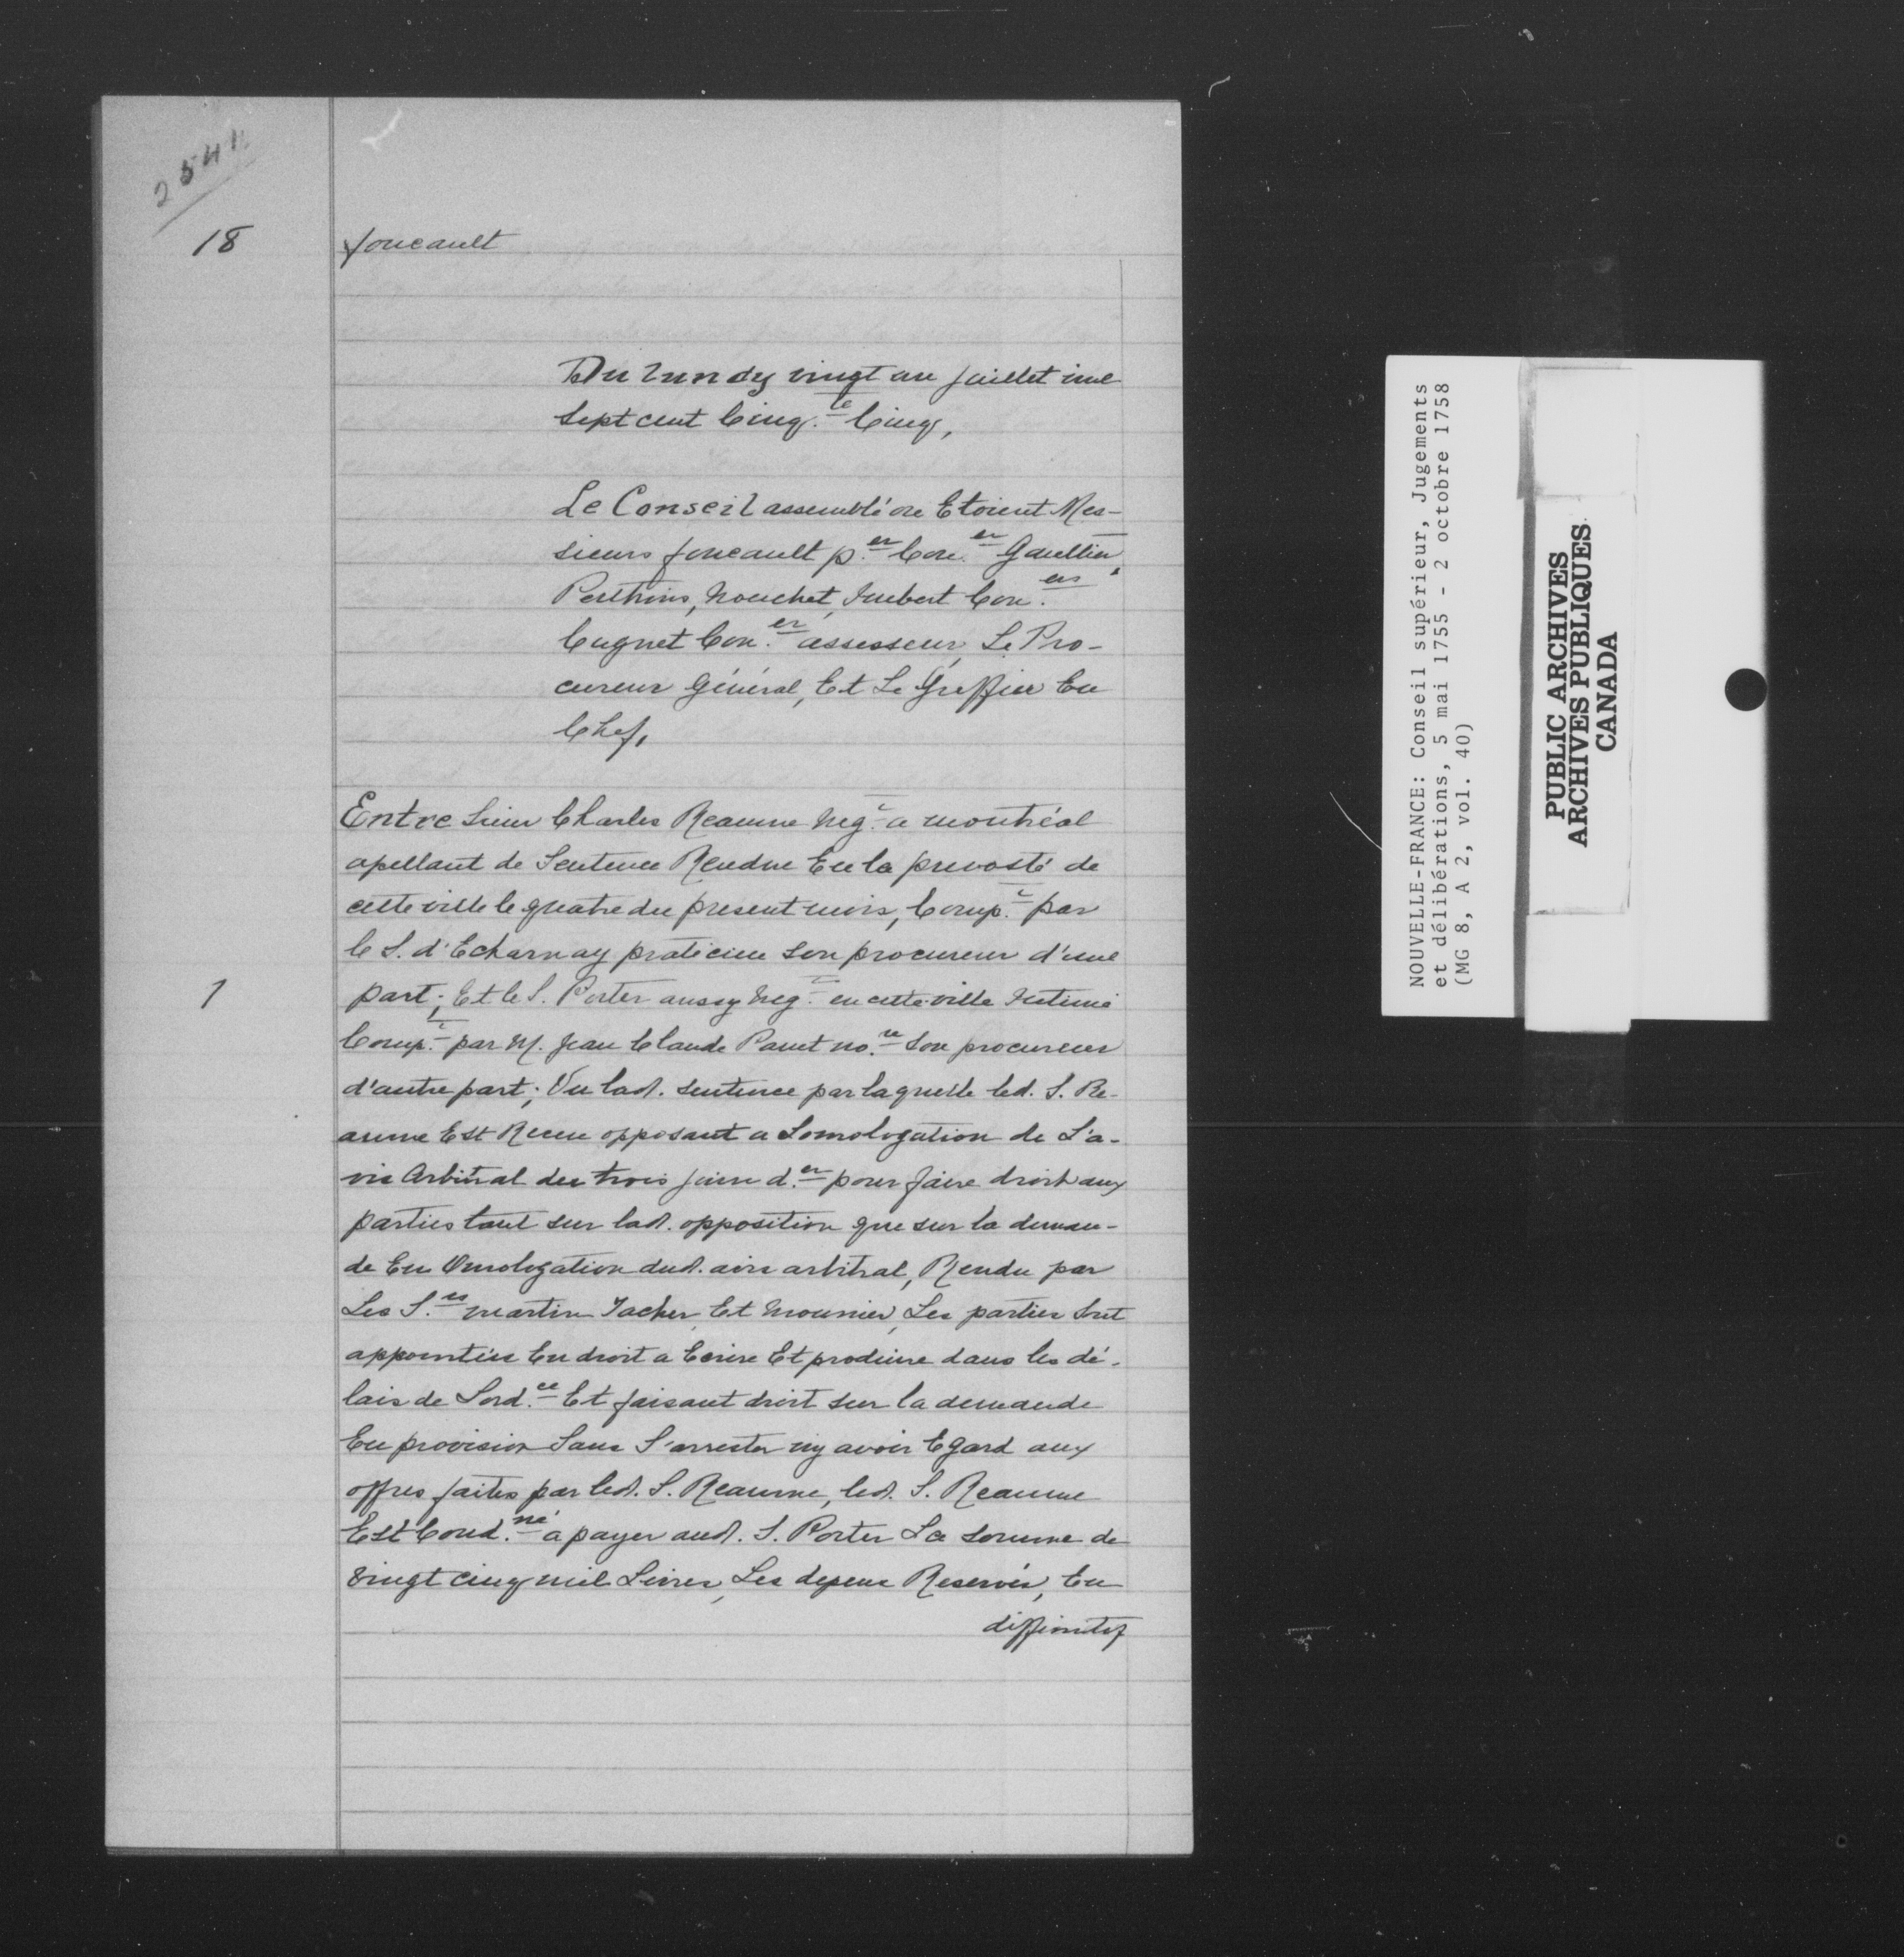 2541
18
foucault
Du Lundy vingt un Juillet mil
Sept cent Cinq.te Cinq,
Le Conseil assemblé ou Etoient Mes-
sieurs foucault p.er Con.er Gaultier,
Perthuis, Nouchet, Imbert Con.ers
Cugnet Con.er assesseur, Le Pro-
cureur Général, Et Le Greffier En
Chef,
Entre Sieur Charles Reaume Neg.t a montréal
apellant de Sentence Rendue En la prevosté de
cette ville le quatre du present mois, Comp.t par
le S. d'Echarnay praticien son procureur d'une
1
part; Et le S. Porter aussy Neg.t en cette ville Intimé
Comp.t par M. Jean Claude Panet no.re son procureur
d'autre part; Vu lad. sentence par laquelle led. S. Re-
aume Est Receu opposant a Lomologation de L'a-
vis Arbitral du trois juin d.er pour faire droit aux
parties tant sur lad. opposition que sur la deman-
de En Omologation dud. avis arbitral, Rendu par
Les S.rs martin Tacher, Et Mounier, Les parties sont
appointées En droit a Ecrire Et produire dans les dé-
lais de Lord.ce Et faisant droit sur la demande
En provision Sans S'arrester ny avoir Egard aux
offres faites par led. S. Reaume, led. S. Reaume
Est Cond.né a payer aud. S. Porter La somme de
Vingt cinq mil Livres, Les depens Reservés, En
diffinitif
NOUVELLE-FRANCE: Conseil supérieur, Jugements
et délibérations, 5 mai 1755 - 2 octobre 1758
(MG 8, A 2, vol. 40)
PUBLIC ARCHIVES
ARCHIVES PUBLIQUES
CANADA